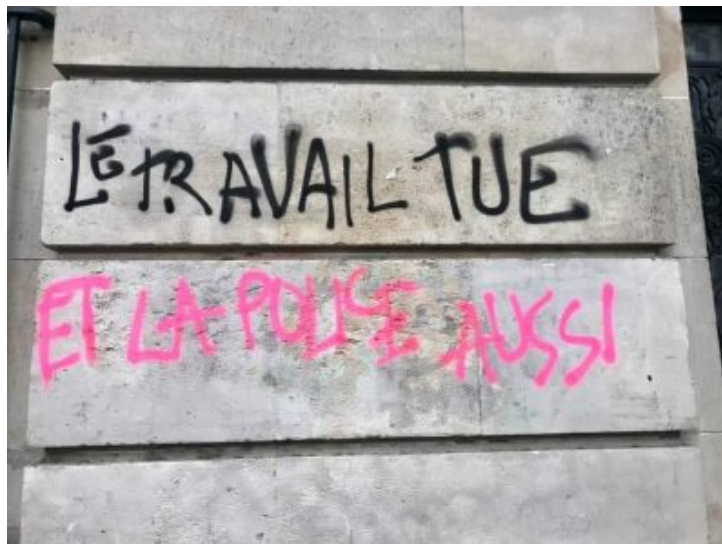 LE TRAVAIL TUE
ET LA POLICE AUSSI